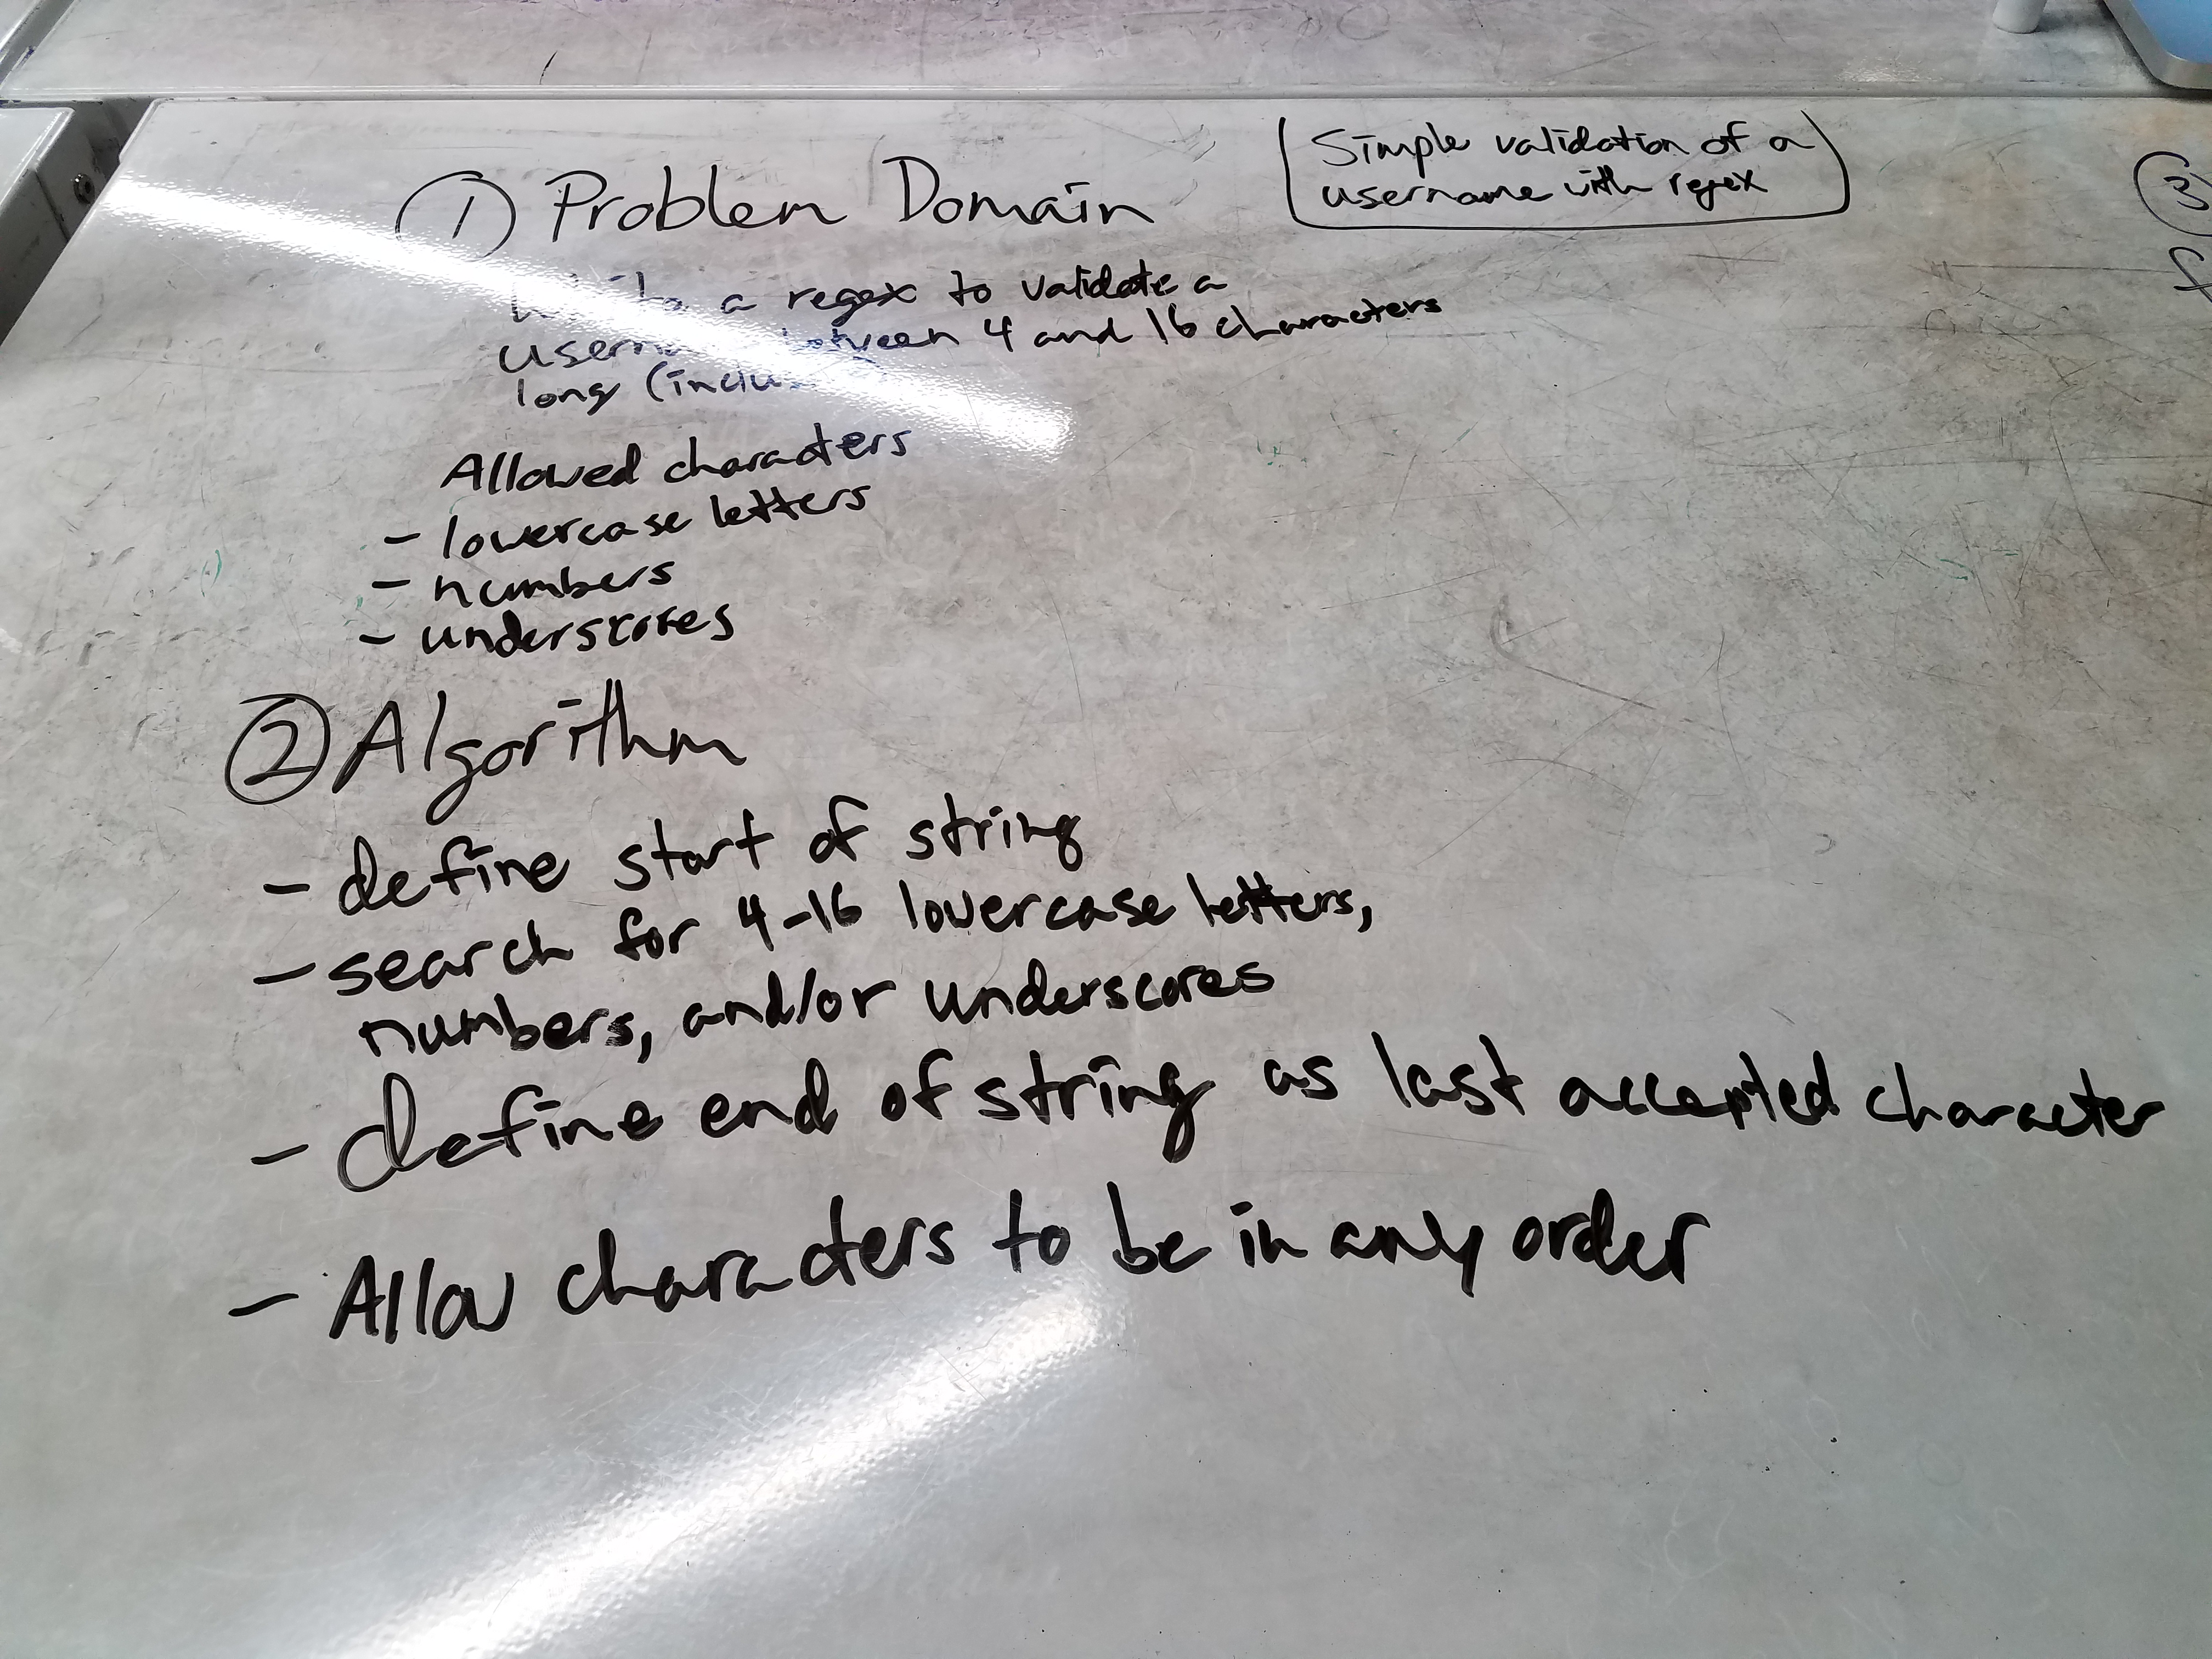 Simple validation of a
username with regex
① Problem Domain
Write a regex to validate a
between 4 and 16 characters
long
Allowed characters
- lowercase letters
- numbers
- underscores
② Algorithm
- define start of string
- search for 4-16 lowercase letters,
numbers, and/or underscores
- define end of string as last accepted character
- Allow characters to be in any order
③
f